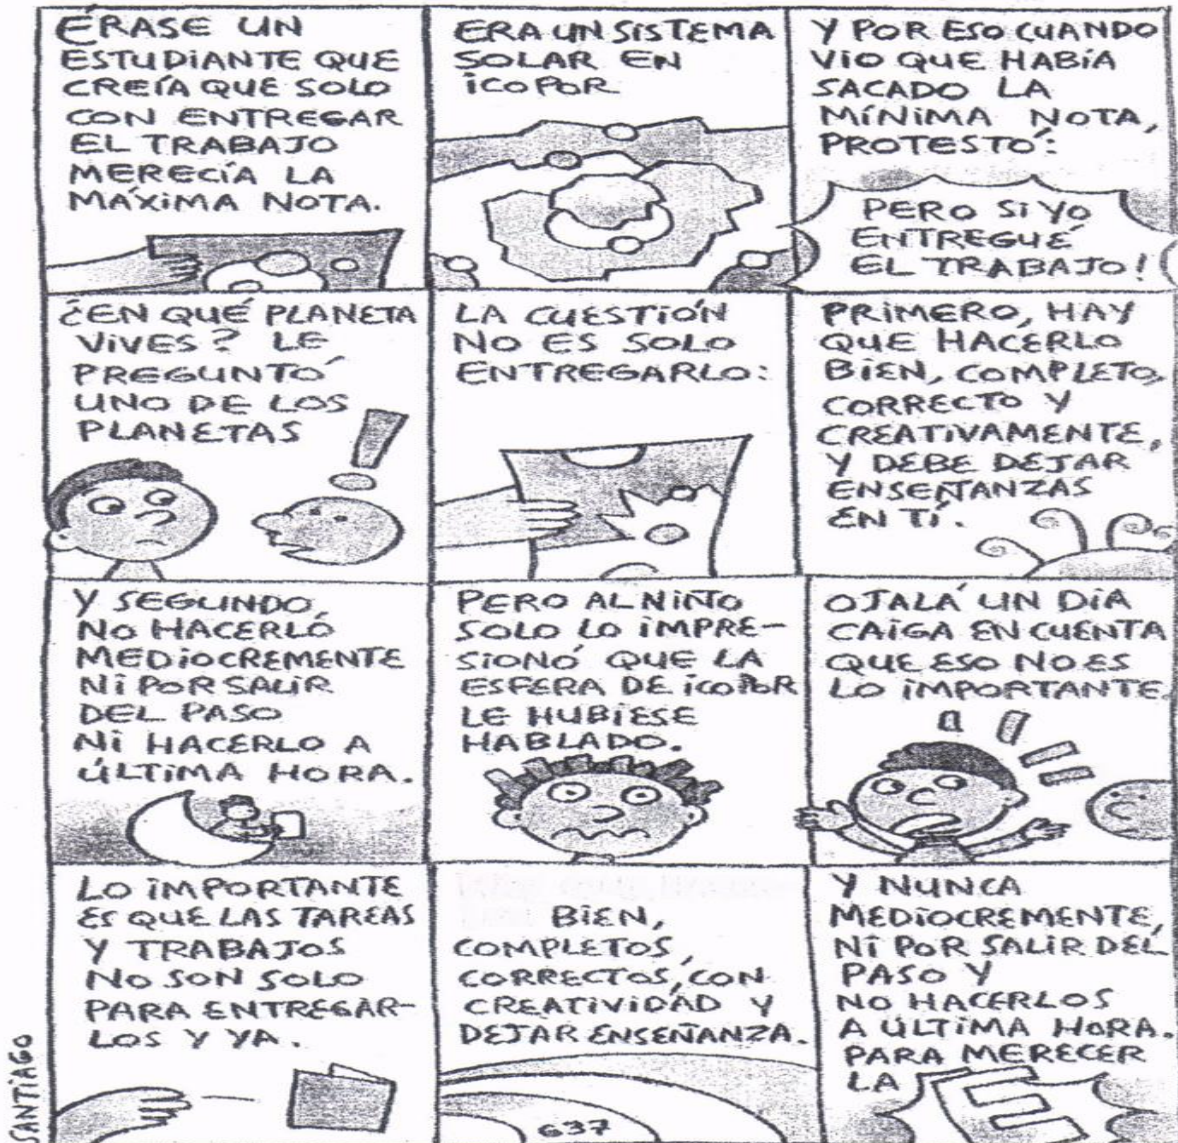 ÉRASE UN
ESTUDIANTE QUE
CREÍA QUE SOLO
CON ENTREGAR
EL TRABAJO
MERECÍA LA
MÁXIMA NOTA.
ERA UN SISTEMA
SOLAR EN
ICOPOR
Y POR ESO CUANDO
VIO QUE HABÍA
SACADO LA
MÍNIMA NOTA,
PROTESTÓ:
PERO SI YO
ENTREGUÉ
EL TRABAJO!
¿EN QUÉ PLANETA
VIVES? LE
PREGUNTÓ
UNO DE LOS
PLANETAS
!
LA CUESTIÓN
NO ES SOLO
ENTREGARLO:
PRIMERO, HAY
QUE HACERLO
BIEN, COMPLETO,
CORRECTO Y
CREATIVAMENTE,
Y DEBE DEJAR
ENSEÑANZAS
EN TÍ.
Y SEGUNDO,
NO HACERLO
MEDIOCREMENTE
NI POR SALIR
DEL PASO
NI HACERLO A
ÚLTIMA HORA.
PERO AL NIÑO
SOLO LO IMPRE-
SIONÓ QUE LA
ESFERA DE ICOPOR
LE HUBIESE
HABLADO.
OJALÁ UN DÍA
CAIGA EN CUENTA
QUE ESO NO ES
LO IMPORTANTE.
LO IMPORTANTE
ES QUE LAS TAREAS
Y TRABAJOS
NO SON SOLO
PARA ENTREGAR-
LOS Y YA.
BIEN,
COMPLETOS,
CORRECTOS, CON
CREATIVIDAD Y
DEJAR ENSEÑANZA.
637
Y NUNCA
MEDIOCREMENTE,
NI POR SALIR DEL
PASO Y
NO HACERLOS
A ÚLTIMA HORA.
PARA MERECER
LA E
SANTIAGO